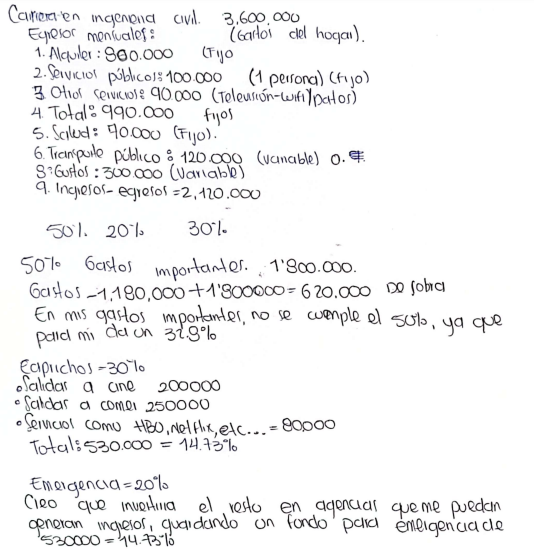 Carrera en ingenería civil. 3,600.000
Egresor mensuales: (Gastos del hogar).
1. Alquiler: 800.000 (Fijo
2. Servicios públicos: 100.000 (1 persona) (fijo)
3 Otros servicios: 90.000 (Televisión-wifi/datos)
4. Total: 990.000 fijos
5. Salud: 70.000 (Fijo).
6. Transporte público: 120.000 (variable) 0.
8: Gustos: 300.000 (Variable)
9. Ingresos-egresos = 2,120.000
50% 20% 30%
50% Gastos importantes. 1'800.000.
Gastos -1,180,000 + 1'800000 = 620.000 De sobra
En mis gastos importantes, no se cumple el 50%, ya que
para mi da un 32.8%
Caprichos = 30%
• Salidas a cine 200000
• Salidas a comer 250000
• Servicios como HBO, Netflix, etc... = 80,000
Total: 530.000 = 14.73%
Emergencia = 20%
Creo que invertiria el resto en agencias que me puedan
generan ingresos, guardando un fondo para emergencia de
530000 = 14.73%